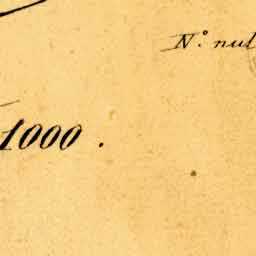 N.º nul
1000.